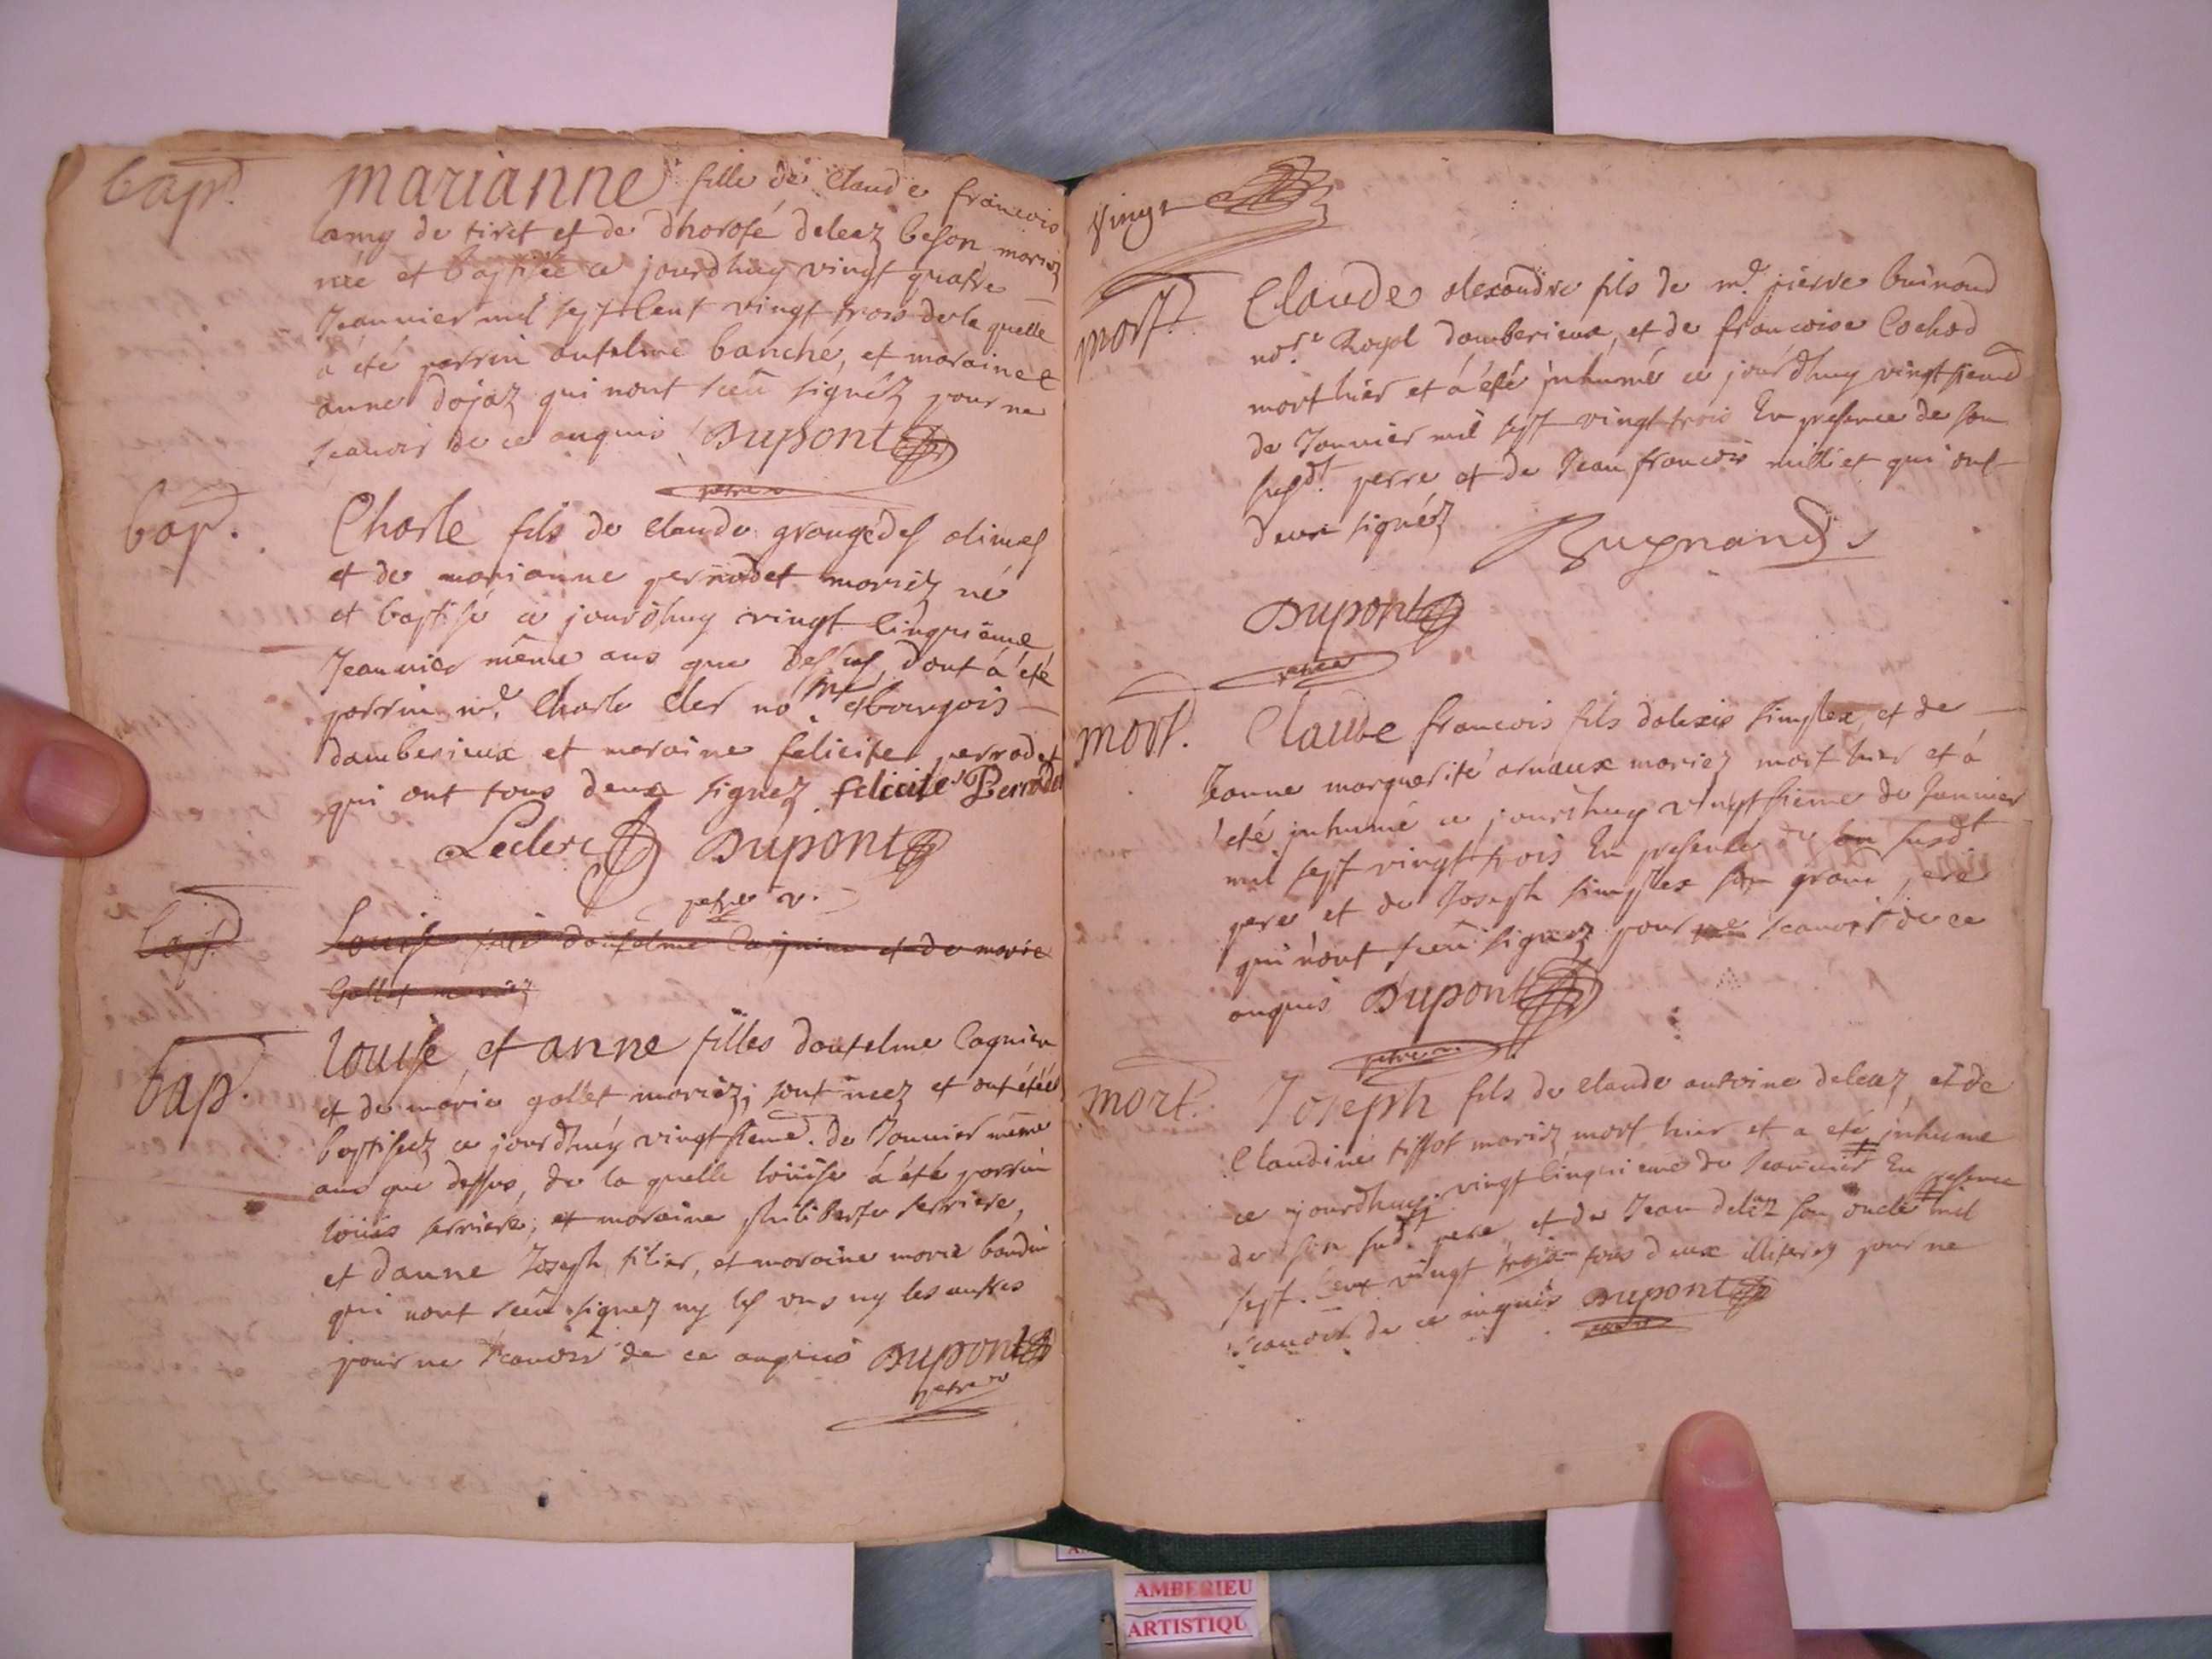 bap.t
marianne fille de Claude francois
lamy de tiret et de dhorose deleaz beson mariez
née et baptisée ce jourdhuy vingt quatre
Jeanvier mil sept Cent vingt trois de la quelle
a été parrin antelme banché, et maraine
anne dojaz qui nont sceu signéz pour ne
scauoir de ce anquis Dupont
petre v
bap.
Charle fils de claude grange des alimes
et de marianne perrodet mariez né
et baptisé ce jourdhuy vingt cinquième
Jeanvier même ans que dessus, dont a été
parrin m.e Charle Cler no.re et bourgois
damberieux et maraine felicite perrodet
qui ont tous deux signez felicite Perrodet
Leclerc Dupont
petre v.
bap.t
Louise fille dantelme Cagnin et de marie
Gollet mariez
bap.t
Louise et anne filles dantelme Cagnin
et de marie gollet mariéz, sont neez et ont étéé
baptiseéz ce jourdhuy vingt sieme de Januier même
ans que dessus, de la quelle louise á été parrin
louis serriere, et maraine philiberte serriere,
et danne Joseph tilier, et maraine marie baudin
qui nont sceu signez ny les uns ny les autres
pour ne scauoir de ce anquis Dupont
petre v
Vingt
mort.
Claude alexandre fils de m.e pierre buinand
no.re Royal damberieux, et de francoise Cochod
mort hier et á été inhumé ce jourdhuy vingt sieme
de Januier mil sept vingt trois En presence de son
susd.t perre et de Jean francois milliet qui ont
deux signéz Bugnand
Dupont
petre v
mort.
Claude francois fils dalexis simplex, et de
Jeanne marguerite arnaux mariez mort hier et á
été inhumé ce jourdhuy vingt sieme de Januier
mil sept vingt trois En presence de son susd.t
pere et de Joseph simplex son grand pere
qui nont sceu signez pour ne scauoir de ce
anquis Dupont
petre v
mort.
Joseph fils de claude antoine deleaz, et de
Claudine tissot mariez mort hier et a eté inhume
ce jourdhuy vingt cinquieme de Jeanuier En presence
de son sud.t pere, et de Jean deleaz son oncle mil
sept. Cent vingt trois tous deux illiterez pour ne
scauoir de ce anquis Dupont
petre v
AMBERIEU
ARTISTIQU